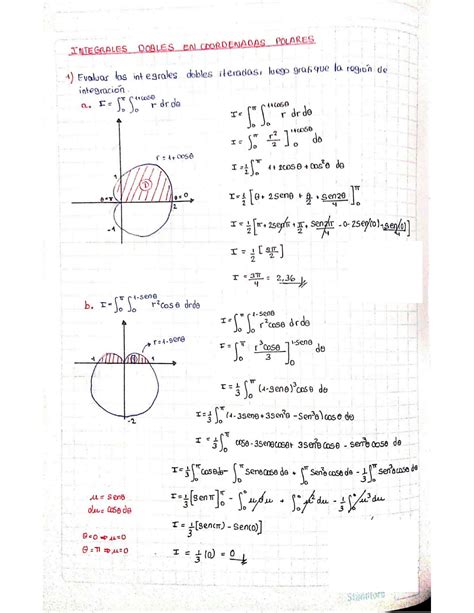 INTEGRALES DOBLES EN COORDENADAS POLARES
1) Evaluar las integrales dobles iteradas, luego grafique la región de
integración.
a. I = ∫₀^π ∫₀^(1+cosθ) r dr dθ
r = 1+cosθ
θ=π
θ=0
1
2
-1
D
I = ∫₀^π ∫₀^(1+cosθ) r dr dθ
I = ∫₀^π r²/2 ]₀^(1+cosθ) dθ
I = 1/2 ∫₀^π 1+2cosθ+cos²θ dθ
I = 1/2 [θ + 2senθ + θ/2 + sen2θ/4]₀^π
I = 1/2 [π + 2senπ + π/2 + sen2π/4 - 0 - 2sen(0) - sen(0)/4]
I = 1/2 [3π/2]
I = 3π/4 = 2,36
b. I = ∫₀^π ∫₀^(1-senθ) r² cosθ dr dθ
r = 1-senθ
-1
1
-2
I = ∫₀^π ∫₀^(1-senθ) r² cosθ dr dθ
I = ∫₀^π r³cosθ/3 ]₀^(1-senθ) dθ
I = 1/3 ∫₀^π (1-senθ)³ cosθ dθ
I = 1/3 ∫₀^π (1-3senθ+3sen²θ-Sen³θ) cosθ dθ
I = 1/3 ∫₀^π cosθ-3senθcosθ+3sen²θcosθ-sen³θcosθ dθ
I = 1/3 ∫₀^π cosθdθ - ∫₀^π senθcosθ dθ + ∫₀^π sen²θcosθ dθ - 1/3 ∫₀^π sen³θcosθ dθ
u = senθ
du = cosθ dθ
θ=0 ⇒ u=0
θ=π ⇒ u=0
I = 1/3 [senπ]₀^π - ∫₀^0 u du + ∫₀^0 u² du - 1/3 ∫₀^0 u³ du
I = 1/3 [sen(π) - Sen(0)]
I = 1/3 (0) = 0